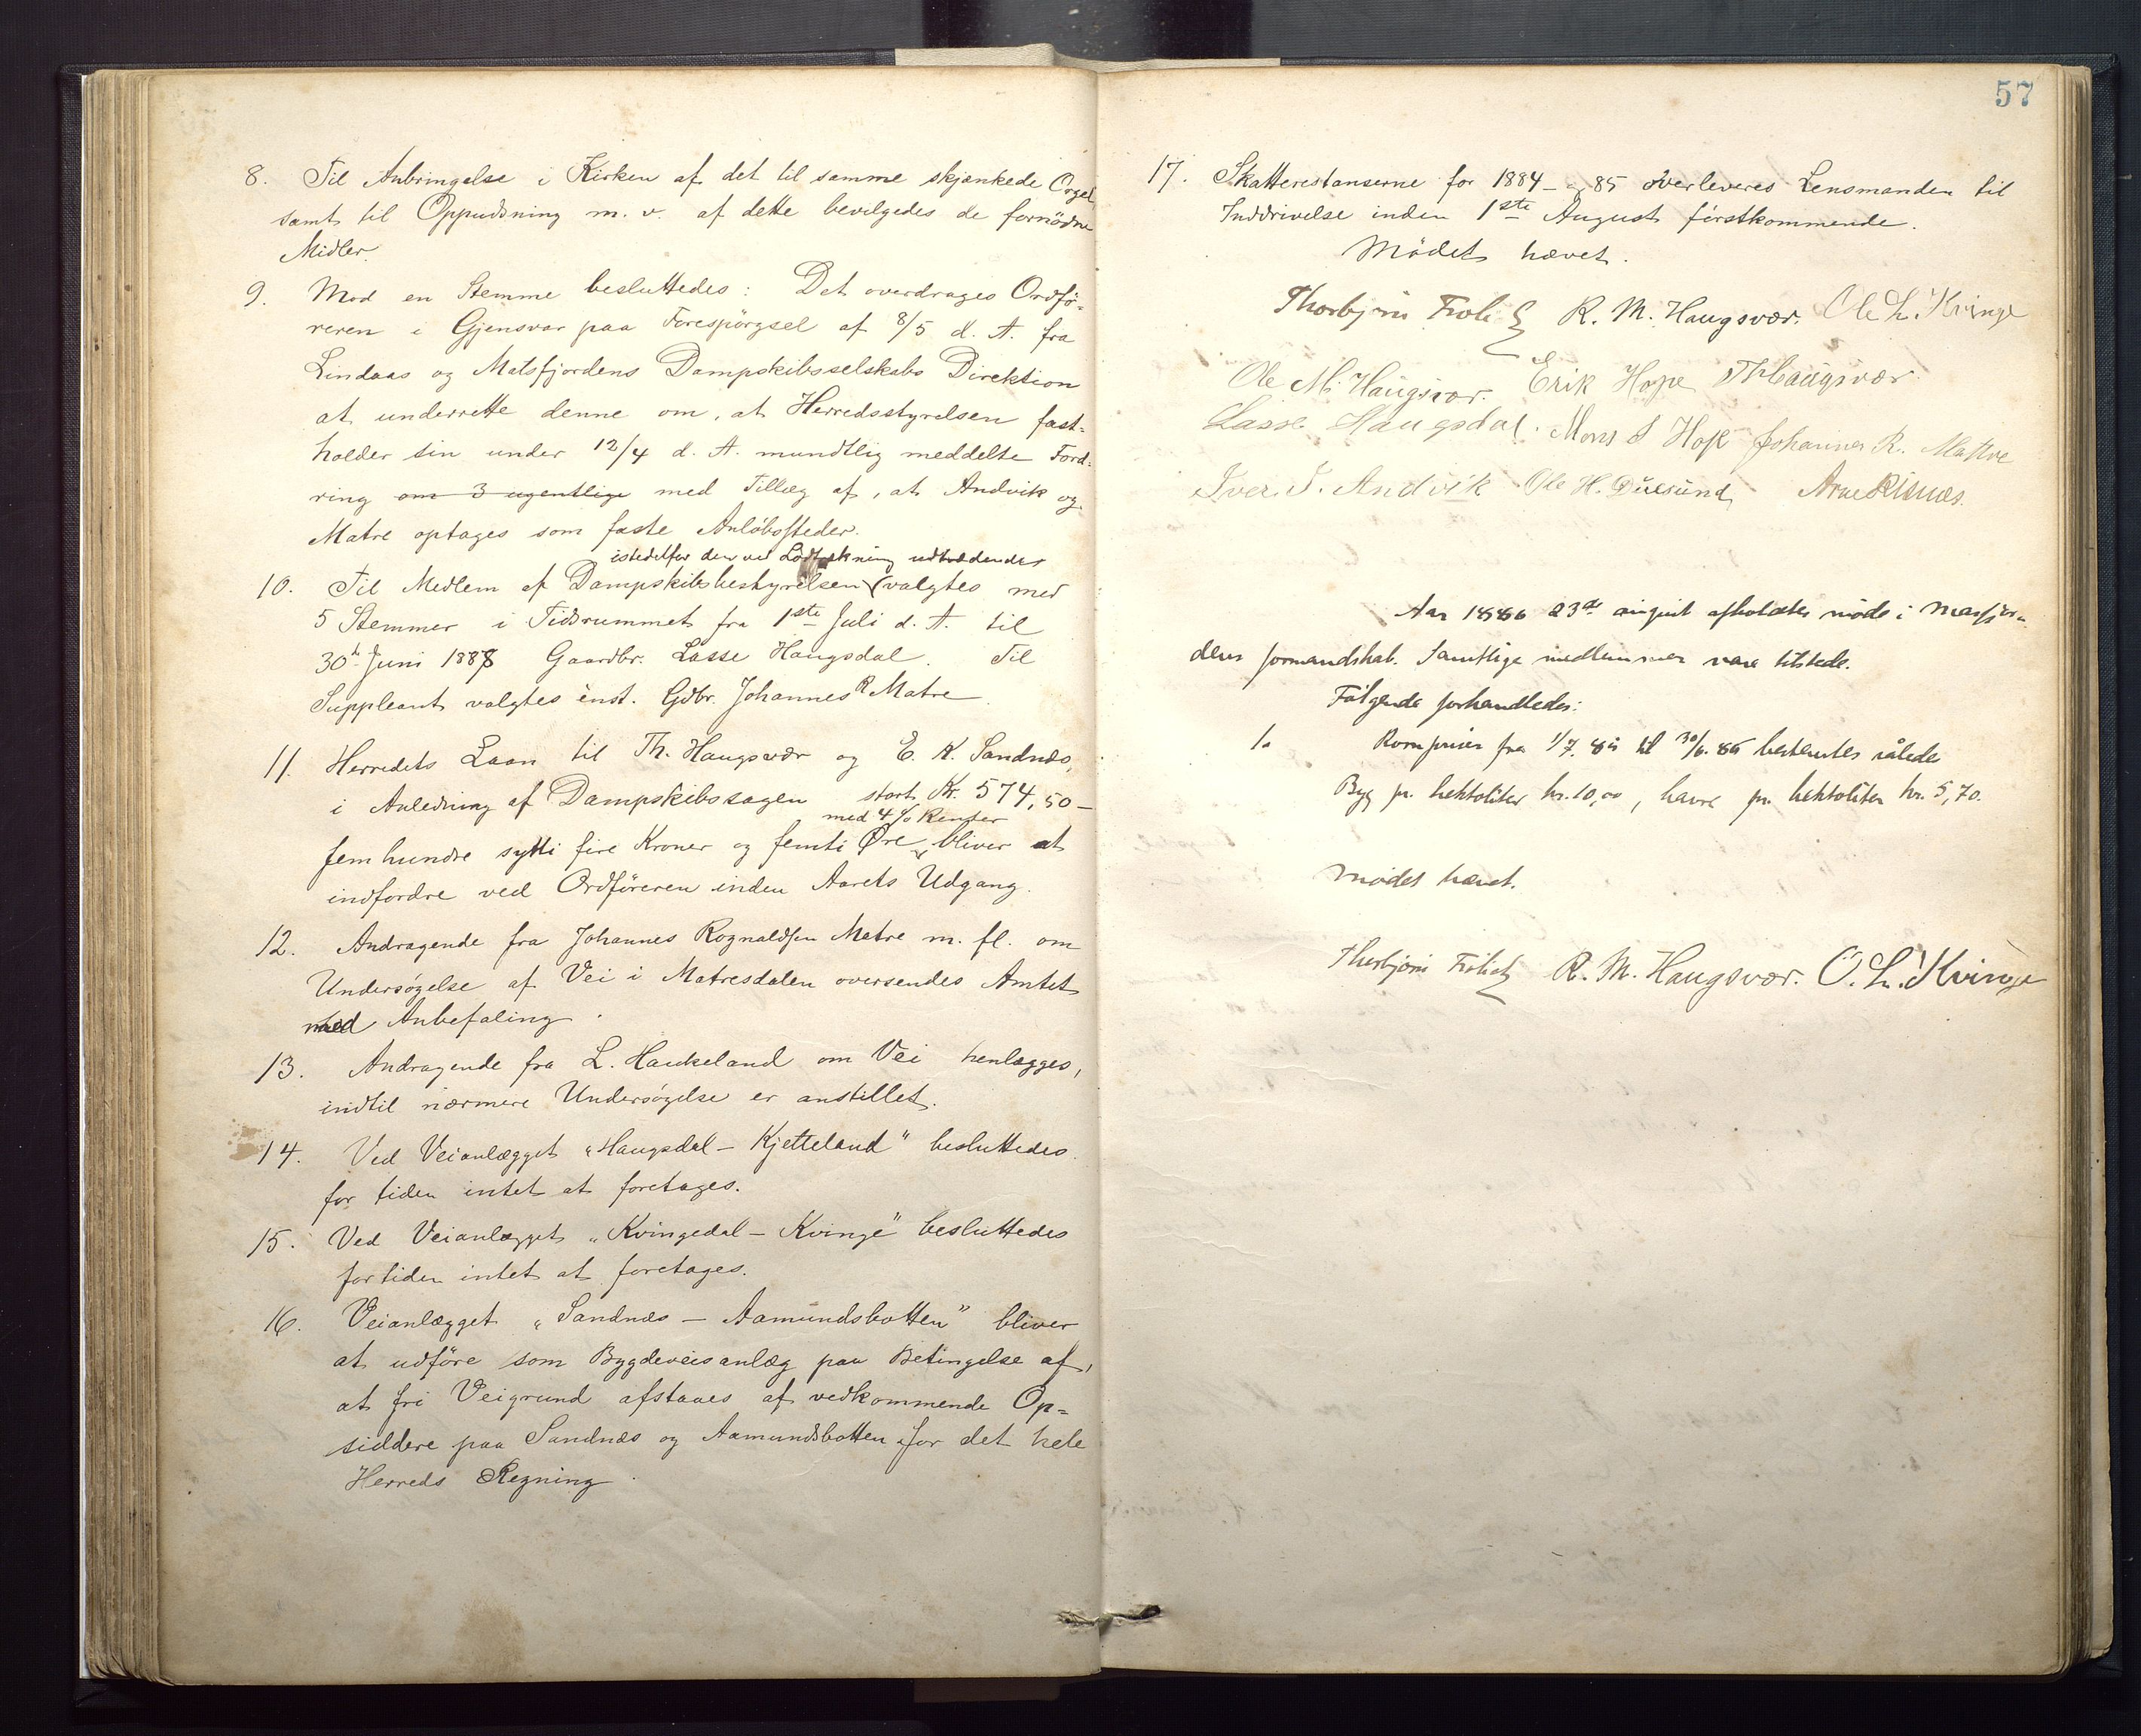 8. Til Anbringelse i Kirken af det til samme skjænkede Orgel,
samt til Oppudsning m. v. af dette bevilgedes de fornödne
Midler.
9. Mod en Stemme besluttedes: Det overdrages Ordfö-
reren i Gjensvar paa Forespörgsel af 8/5 d. A. fra
Lindaas og Matsfjordens Dampskibsselskabs Direktion
at underrette denne om, at Herredsstyrelsen fast-
holder sin under 12/4 d. A. mundtlig meddelte Ford-
ring om 3 ugentlige med Tillæg af, at Andvik og
Matre optages som faste Anlöbssteder.
istedetfor den ved Lodtrækning udtrædende
10. Til Medlem af Dampskibsbestyrelsen (valgtes med
5 Stemmer i Tidsrummet fra 1ste Juli d. A. til
30te Juni 1888 Gaardbr. Lasse Haugsdal. Til
Suppleant valgtes enst. Gdbr. Johannes R Matre.
11. Herredets Laan til Th. Haugsvær og E. K. Sandnæs,
i Anledning af Dampskibssagen stort Kr. 574,50 –
med 4 % Renter
fem hundre sytti fire Kroner og femti Øre bliver at
indfordre ved Ordföreren inden Aarets Udgang.
12. Andragende fra Johannes Rognaldsen Matre m. fl. om
Undersøgelse af Vei i Matresdalen oversendes Amtet
med Anbefaling.
13. Andragende fra L. Haukeland om Vei henlægges,
indtil nærmere Undersøgelse er anstillet.
14. Ved Veianlægget "Haugsdal – Kjetteland" besluttedes
for tiden intet at foretages.
15. Ved Veianlægget "Kvingedal – Kvinge" besluttedes
for tiden intet at foretages.
16. Veianlægget "Sandnæs – Aamundsbotten" bliver
at udföre som Bygdeveisanlæg paa Betingelse af,
at fri Veigrund afstaaes af vedkommende Op-
siddere paa Sandnæs og Aamundsbotten for det hele
Herreds Regning.
57
17. Skatterestanserne for 1884 – og 85 overleveres Lensmanden til
Inddrivelse inden 1ste August förstkommende.
Mödet hævet.
Thorbjörn Frölich R. M. Haugsvær. Ole L. Kvinge
Ole M. Haugsvær. Erik Hope Th Haugsvær
Lasse Haugsdal. Mons S Hope Johannes R. Matre
Iver I. Andvik Ole H. Duesund Arne Risnæs.
Aar 1886 23de august afholdtes möde i Masfjor-
dens formandskab. Samtlige medlemmer vare tilstede.
Fölgende forhandledes:
1. Kornpriser fra 1/7. 85 til 30/6. 86 bestemtes således
Byg pr. hektoliter kr. 10,00, havre pr. hektoliter kr. 5,70.
Mödet hævet.
Thorbjörn Frölich R. M. Haugsvær. O. L. Kvinge